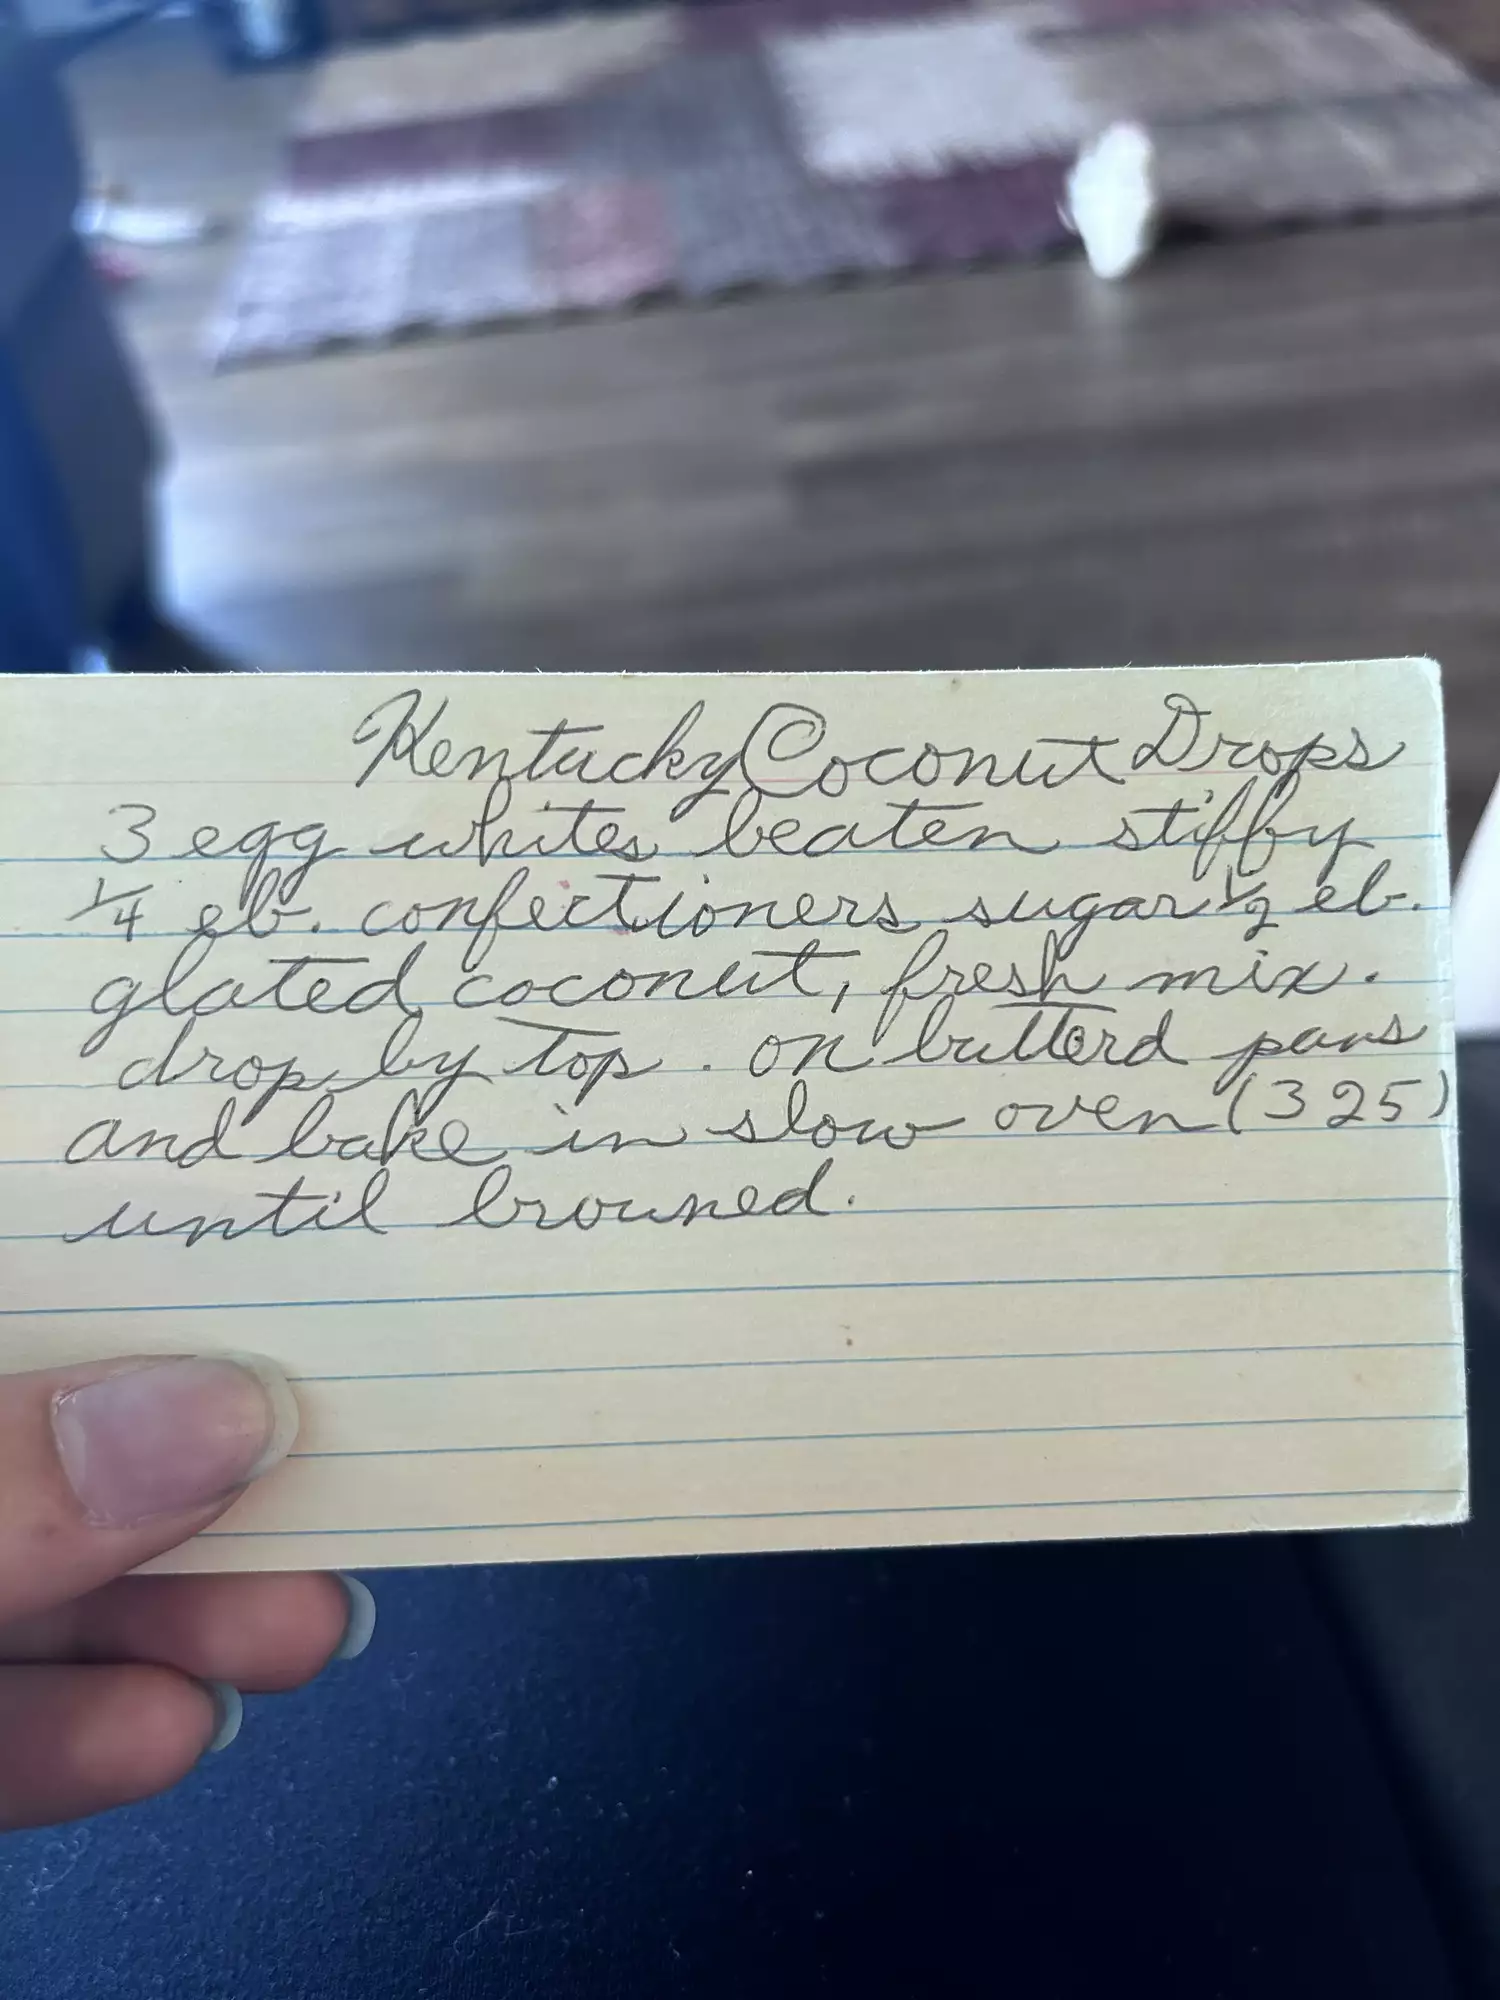 Kentucky Coconut Drops
3 egg whites beaten stiffy
1/4 lb. confectioners sugar 1/2 lb.
glated coconut, fresh mix.
drop by tsp. on butterd pans
and bake in slow oven (325)
until browned.